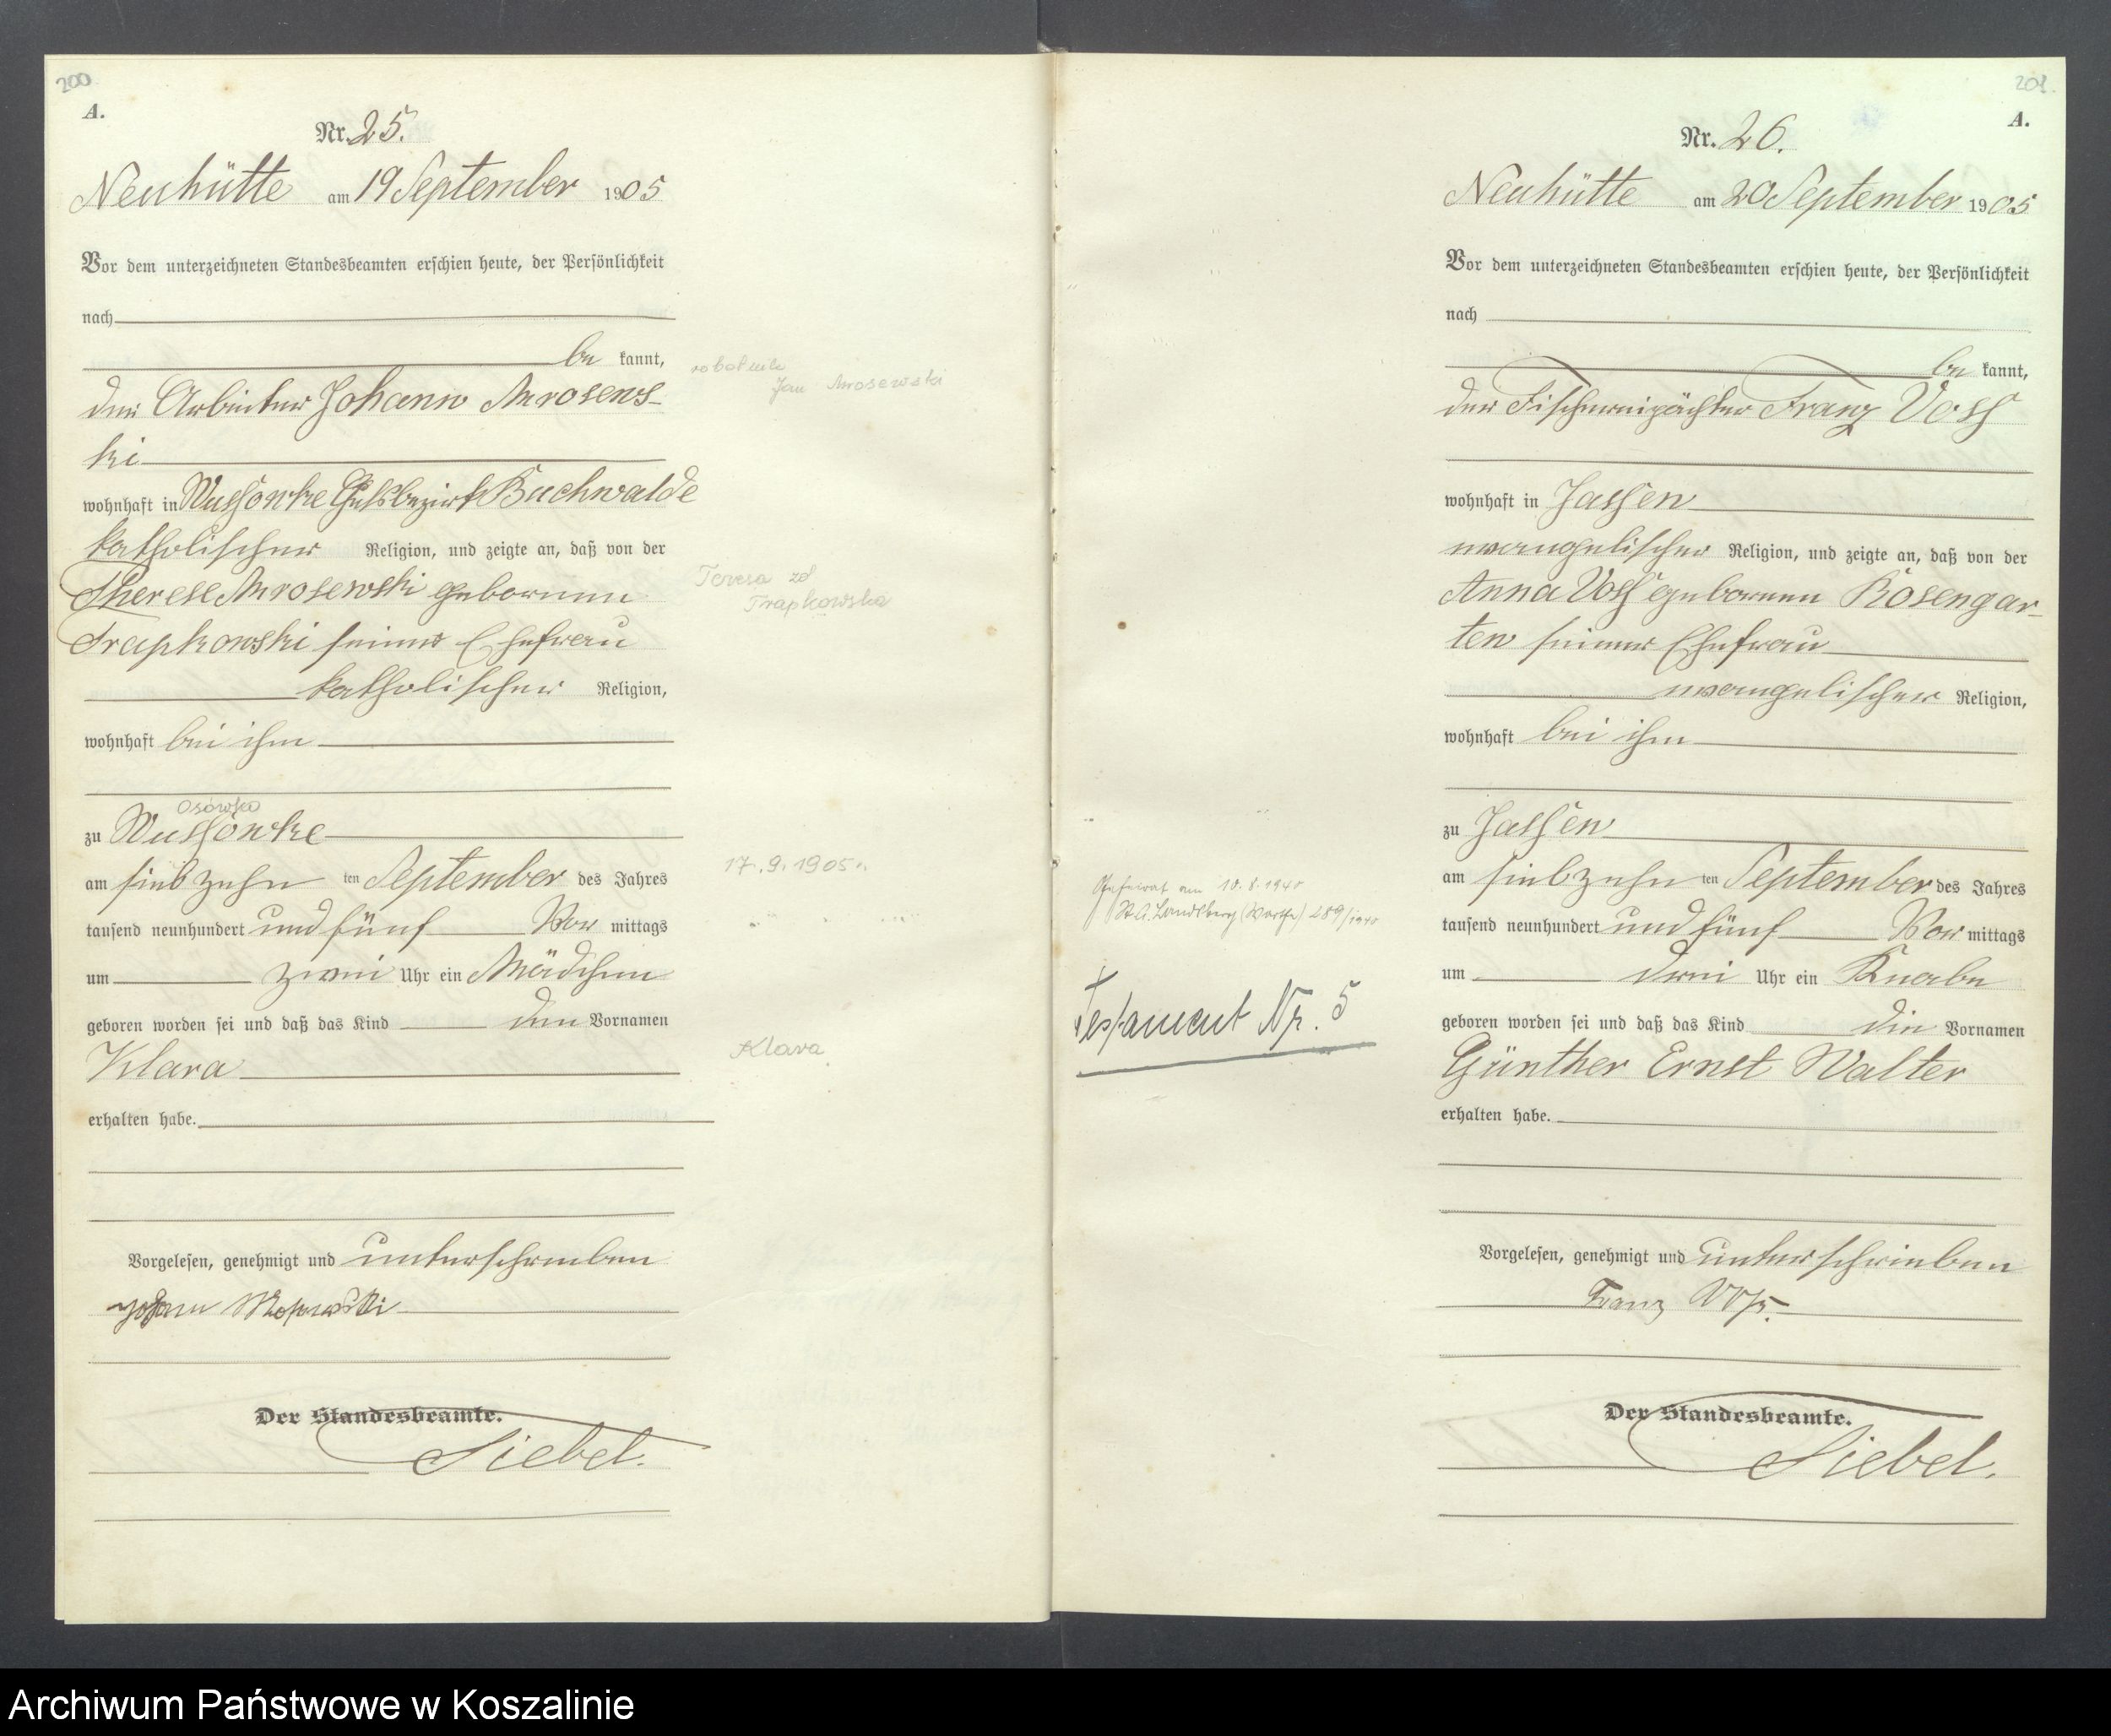 200
A.
Nr. 25.
Neuhütte am 19 September 1905
Vor dem unterzeichneten Standesbeamten erschien heute, der Persönlichkeit
nach
be kannt,
der Arbeiter Johann Mrosews-
ki
wohnhaft in Wussowke Gutsbezirk Buchwalde
katholischer Religion, und zeigte an, daß von der
Therese Mrosewski geborenen
Trapkowski seiner Ehefrau
katholischer Religion,
wohnhaft bei ihm
Osówko
zu Wussowke
am siebzehn ten September des Jahres
tausend neunhundert und fünf Vor mittags
um zwei Uhr ein Mädchen
geboren worden sei und daß das Kind den Vornamen
Klara
erhalten habe.
Vorgelesen, genehmigt und unterschrieben
Johann Mrosewski
Der Standesbeamte.
Siebel.
robotnik
Jan Mrosewski
Teresa zd
Trapkowska
17.9.1905
Klara
201.
A.
Nr. 26.
Neuhütte am 20 September 1905
Vor dem unterzeichneten Standesbeamten erschien heute, der Persönlichkeit
nach
be kannt,
der Fischereipächter Franz Voss
wohnhaft in Jassen
evangelischer Religion, und zeigte an, daß von der
Anna Voss geborenen Rosengar-
ten seiner Ehefrau
evangelischer Religion,
wohnhaft bei ihm
zu Jassen
am siebzehn ten September des Jahres
tausend neunhundert und fünf Vor mittags
um drei Uhr ein Knabe
geboren worden sei und daß das Kind die Vornamen
Günther Ernst Walter
erhalten habe.
Vorgelesen, genehmigt und unterschrieben
Franz Voß.
Der Standesbeamte.
Siebel.
Geheirat am 10.8.1940
St.A. Landsberg (Warthe) 289/1940
Testament Nr. 5
Archiwum Państwowe w Koszalinie